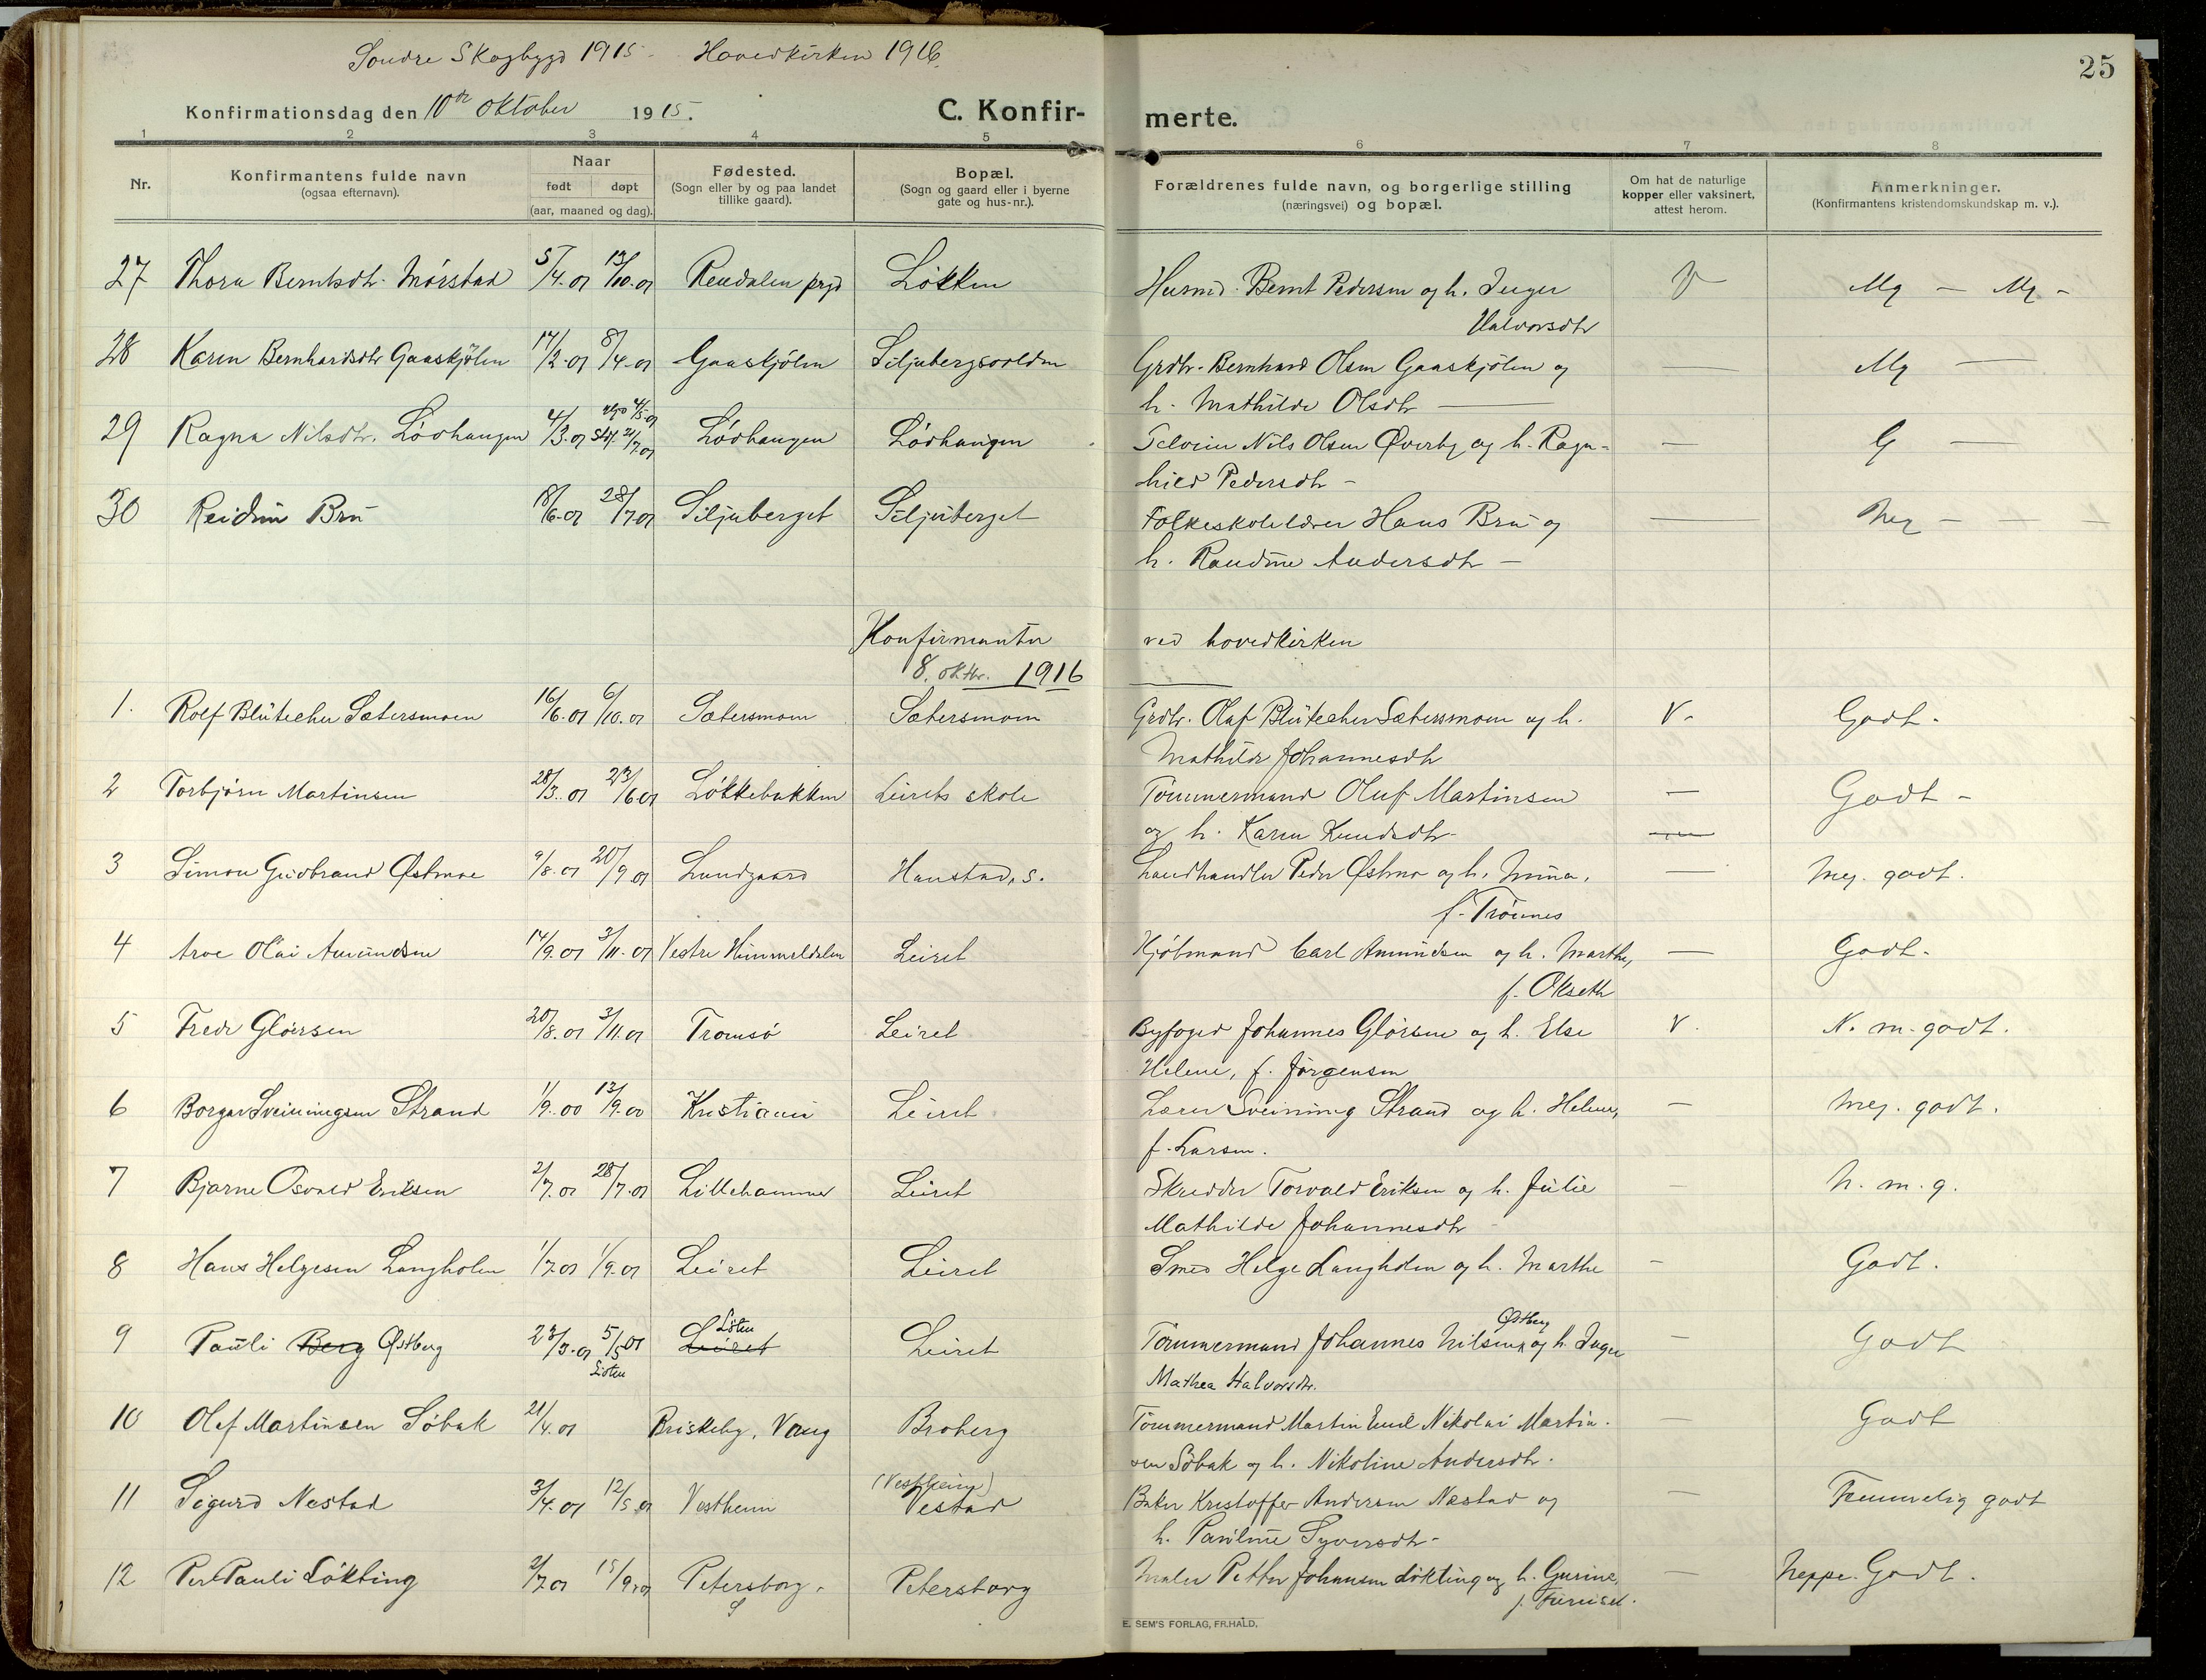 Søndre Skogbygd 1915 - Hovedkirken 1916.
25
Konfirmationsdag den 10de oktober 1915.
C. Konfir- merte.
1 2 3 4 5 6 7 8
Nr.
Konfirmantens fulde navn
(ogsaa efternavn).
Naar
født døpt
(aar, maaned og dag).
Fødested.
(Sogn eller by og paa landet
tillike gaard).
Bopæl.
(Sogn og gaard eller i byerne
gate og hus-nr.).
Forældrenes fulde navn, og borgerlige stilling
(næringsvei) og bopæl.
Om hat de naturlige
kopper eller vaksinert,
attest herom.
Anmerkninger.
(Konfirmantens kristendomskundskap m. v.).
27 Thora Berntsdtr. Mørstad 5/4-01 13/10-01 Rendalen prgd Løkken Husmd. Bernt Pedersen og h. Inger V Mg - Mg -
Halvorsdtr
28 Karen Bernhardsdtr Gaaskjølen 17/2-01 8/4-01 Gaaskjølen Siljubergsvolden Grdbr. Bernhard Olsen Gaaskjølen og — Mg —
h. Mathilde Olsdtr —
29 Ragna Nilsdtr. Lövhaugen 4/3-01 4/5-01 21/7-01 Lövhaugen Lövhaugen Selveier Nils Olsen Øverby og h. Ragn- — G —
hild Pedersdtr -
30 Reidun Bru 18/6-01 28/7-01 Siljuberget Siljuberget Folkeskolelærer Hans Bru og — Mg — — —
h. Randine Andersdtr -
Konfirmanter ved hovedkirken
8. oktbr. 1916
1. Rolf Blütecher Sætersmoen 16/6-01 6/10-01 Sætersmoen Sætersmoen Grdbr. Olaf Blütecher Sætersmoen og h. V - Godt.
Mathilde Johannesdtr
2 Torbjørn Martinsen 28/3-01 23/6-01 Løkkebakken Leirets skole Tømmermand Oluf Martinsen — Godt -
og h. Karen Knudsdtr -
3 Simon Gudbrand Østmoe 9/8-01 20/9-01 Lundgaard Hanstad, s. Landhandler Peder Østmo og h. Mina, — Meg. godt.
f. Trønnes
4 Arve Olai Amundsen 14/9-01 3/11-01 Vestre Himmeldalen Leiret Kjøbmand Carl Amundsen og h. Marthe, — Godt.
f. Okseth
5 Fredr Gløersen 20/8-01 3/11-01 Tromsø Leiret Byfoged Johannes Gløersen og h. Else V. N. m. godt.
Helene, f. Jørgensen
6 Borgar Sveinungsen Strand 1/9-00 13/9-00 Kristiania Leiret Lærer Sveinung Strand og h. Helene, — Meg. godt.
f. Larsen.
7 Bjarne Osvald Eriksen 2/7-01 28/7-01 Lillehammer Leiret Skrædder Torvald Eriksen og h. Julie — N. m. g.
Mathilde Johannesdtr
8 Hans Helgesen Langholen 1/7-01 1/9-01 Leiret Leiret Smed Helge Langholen og h. Marthe - Godt.
9 Pauli Berg Østberg 23/3-01 5/5 01 Løten Leiret Løten Leiret Tømmermand Johannes Nilsen Østberg og h. Inger — Godt
Mathea Halvorsdtr.
10 Olef Martinsen Söbak 21/4-01 Briskeby, Vang Broberg Tömmermand Martin Emil Nikolai Martin- — Godt
sen Söbak og h. Nikoline Andersdtr.
11 Sigurd Nestad 3/4-01 12/5-01 Vestheim (Vestheim) Vestad Baker Kristoffer Andersen Næstad og — Temmelig godt
h. Pauline Syversdtr -
12 Per Pauli Løkting 2/7-01 15/9-01 Petersborg. Petersborg Maler Petter Johansen Løkting og h. Gurine, — Neppe Godt.
f. Furuset.
E. SEM'S FORLAG, FR.HALD.